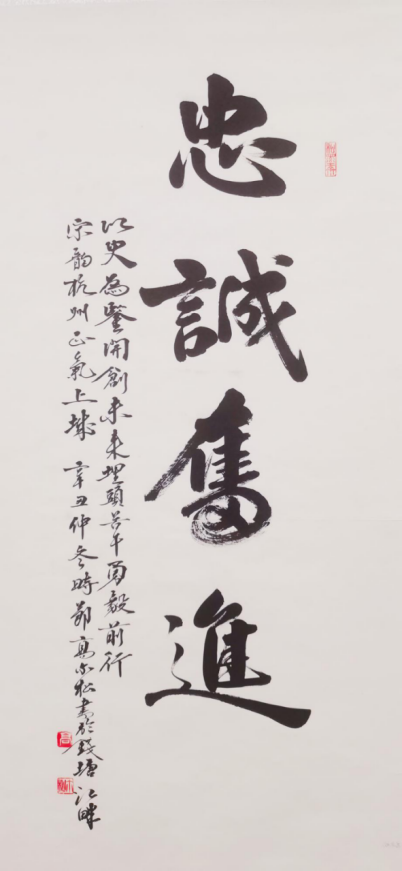 忠誠奮進
以史為鑒開創未來埋頭苦干勇毅前行
宗韵杭州正氣上城 辛丑仲冬時節高尔松書於錢塘江畔